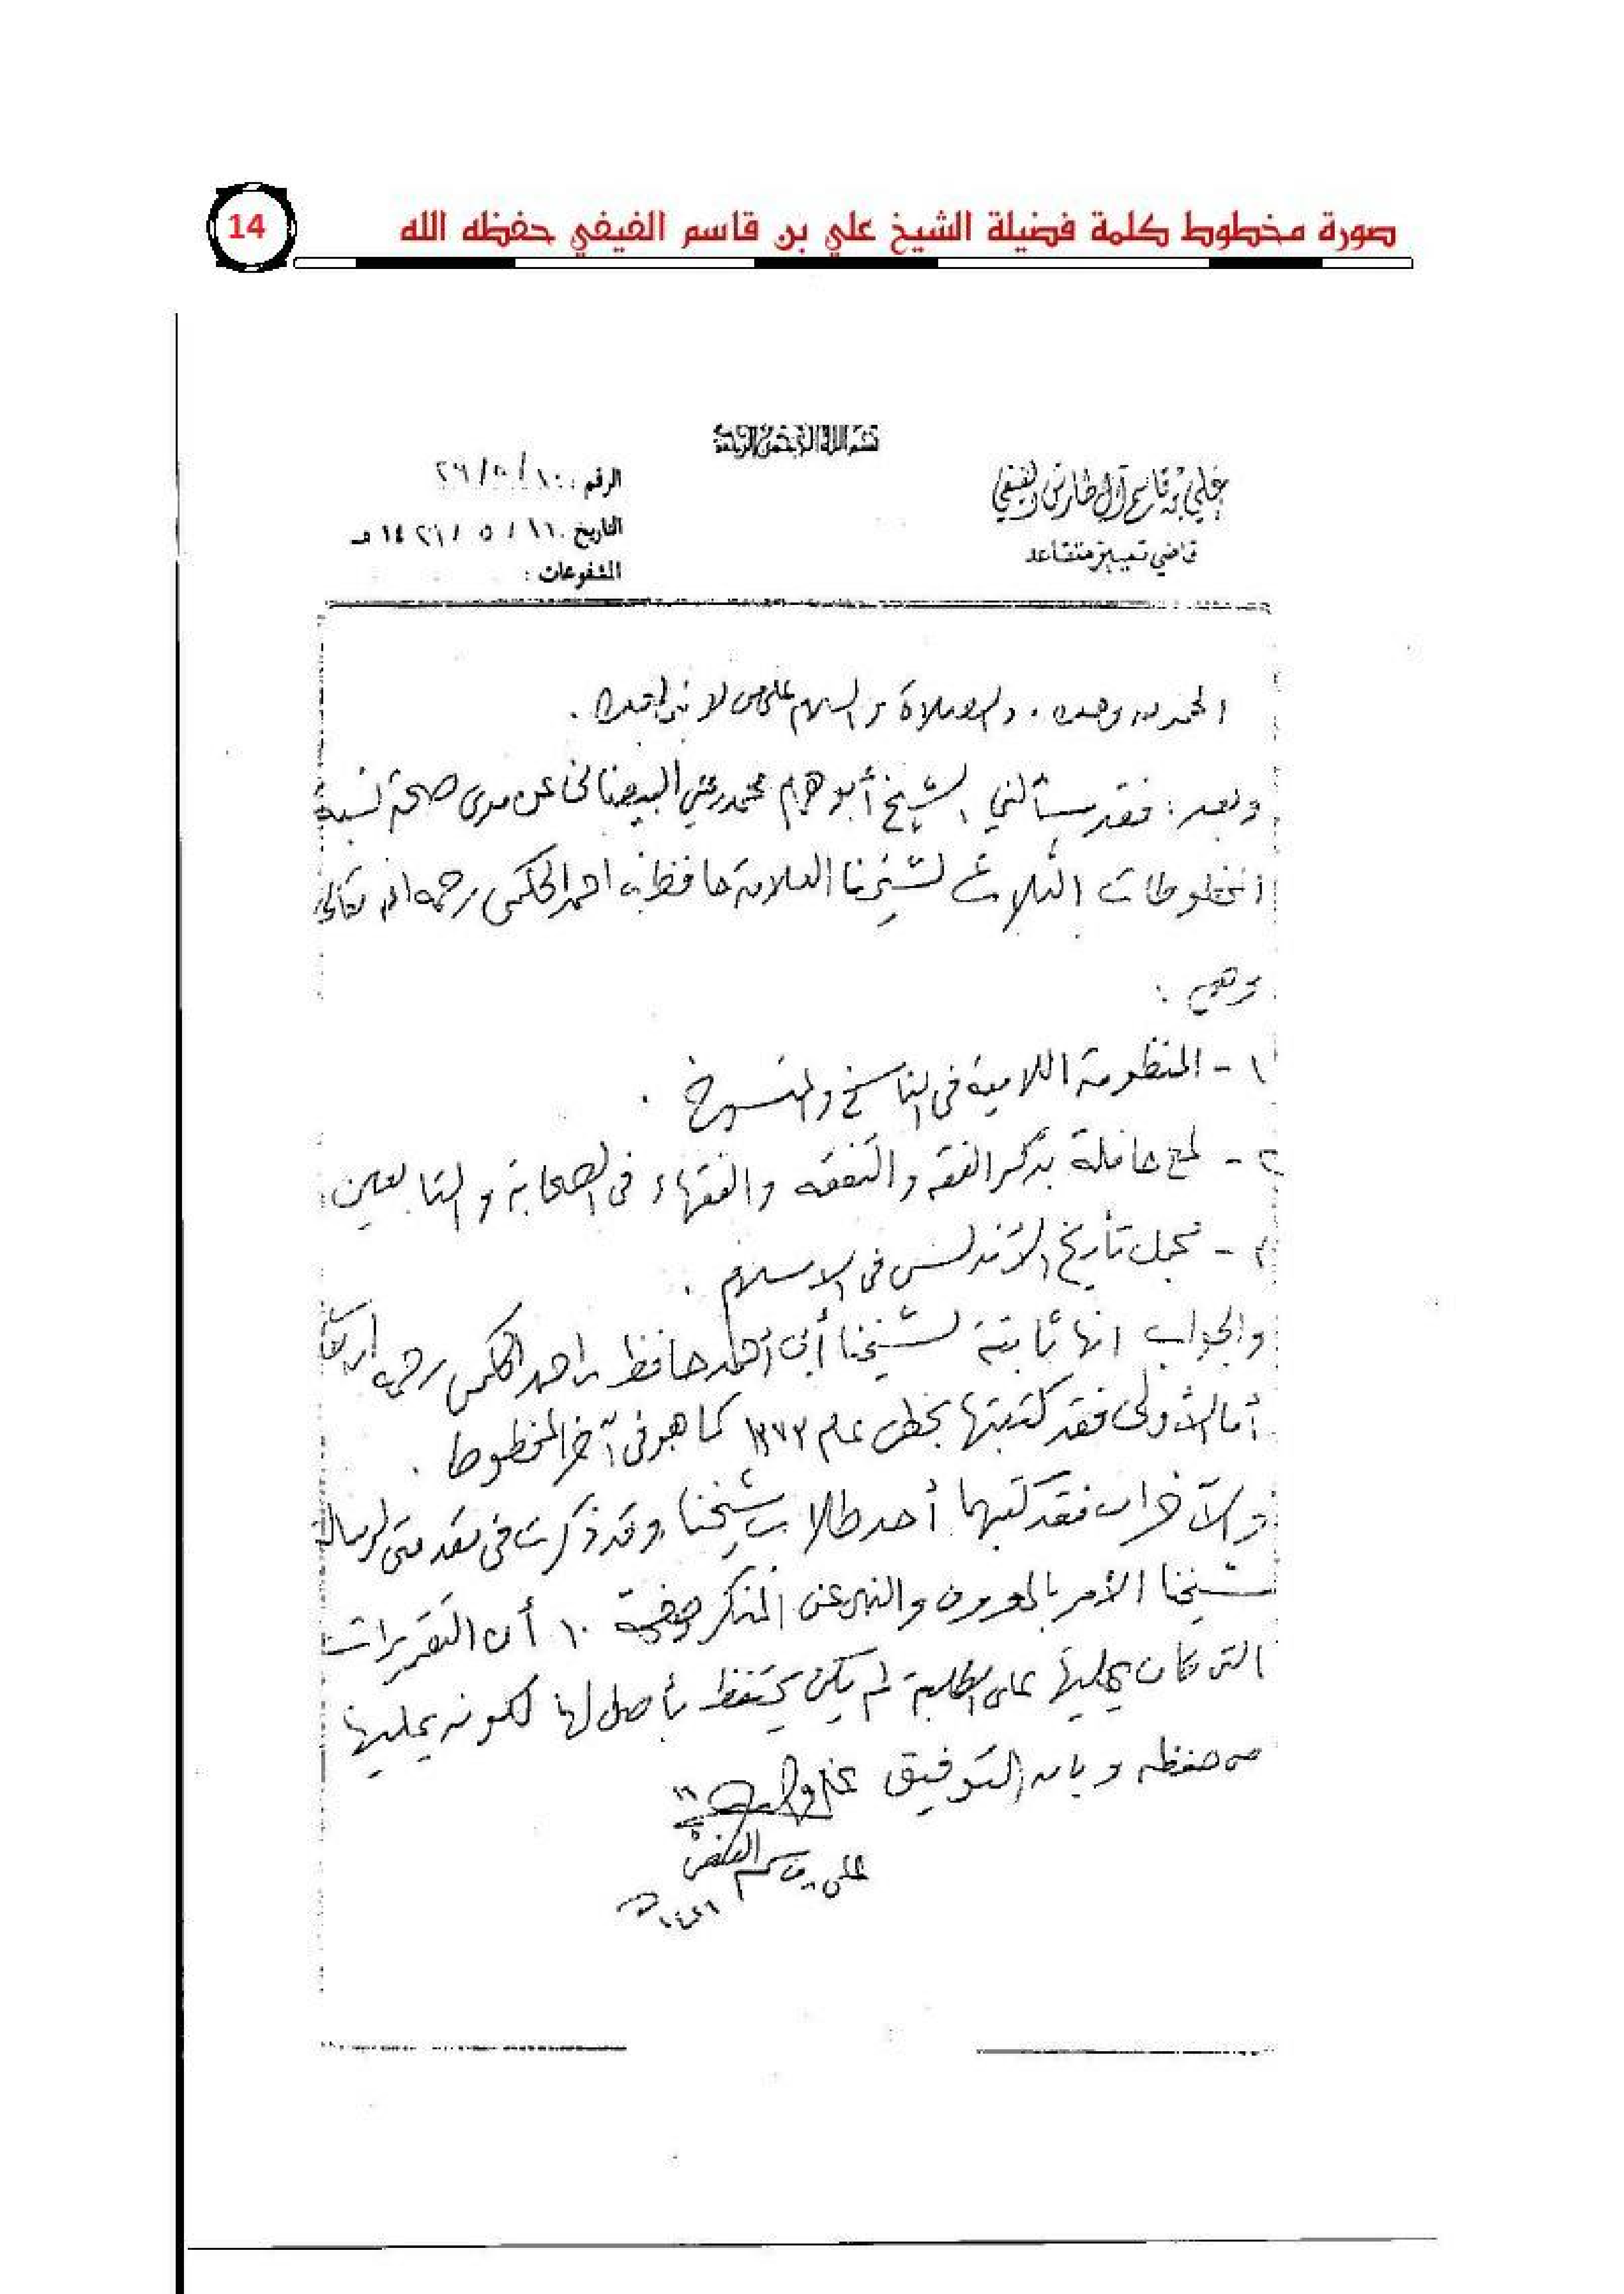 صورة مخطوط كلمة فضيلة الشيخ علي بن قاسم الفيفي حفظه الله
14
بسم الله الرحمن الرحيم
علي بن قاسم آل طارش الفيفي
قاضي تمييز متقاعد
الرقم
التاريخ ١٦ / ٥ / ١٤٢٦ هـ
المشفوعات :
الحمد لله وحده . والصلاة والسلام على من لا نبي بعده .
وبعد : فقد سألني الشيخ أبو همام محمد بن علي البيضاني عن مدى صحة نسبة
المخطوطات الثلاث لشيخنا العلامة حافظ بن احمد الحكمي رحمه الله تعالى
وهي :
١ - المنظومة اللامية في الناسخ والمنسوخ .
٢ - لمع حافلة بذكر الفقه والتفقه والفقهاء في الصحابة والتابعين
٣ - مجمل تأريخ الأندلس في الاسلام .
والجواب انها ثابتة لشيخنا أبي أحمد حافظ بن احمد الحكمي رحمه الله تعالى
أما الأولى فقد كتبتها بخطي عام ١٣٧٣ كما هو في آخر المخطوط .
والآخران فقد كتبهما أحد طلاب شيخنا وقد ذكرت في مقدمتي لرسالة
شيخنا الأمر بالمعروف والنهي عن المنكر صفحة ١٠ أن التقريرات
التي كان يمليها على الطلبة لم يكن يحتفظ بأصل لها لكونه يمليها
من حفظه وبالله التوفيق
علي بن قاسم الفيفي
١٤٢٦ هـ